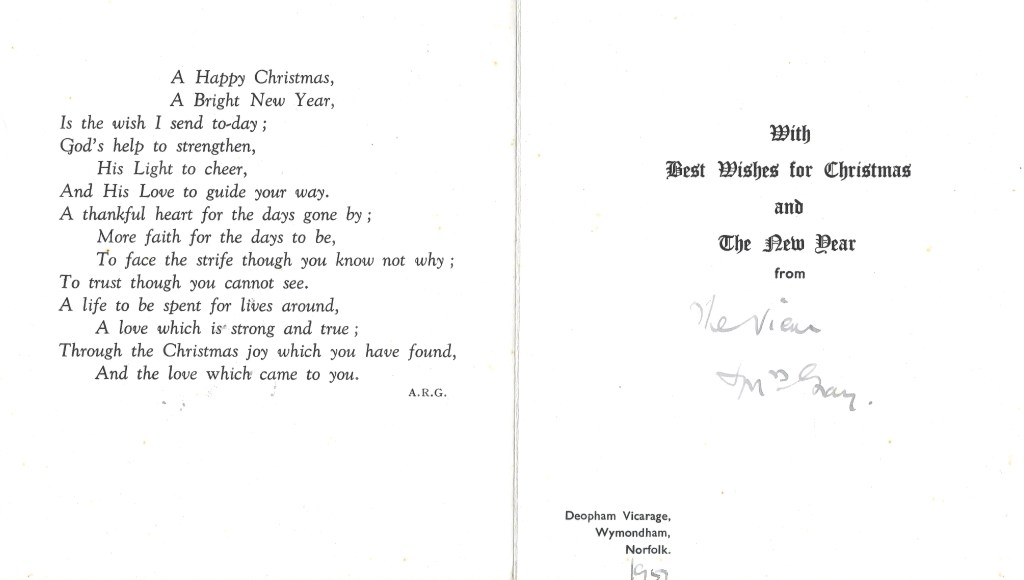 A Happy Christmas,
A Bright New Year,
Is the wish I send to-day ;
God's help to strengthen,
His Light to cheer,
And His Love to guide your way.
A thankful heart for the days gone by ;
More faith for the days to be,
To face the strife though you know not why ;
To trust though you cannot see.
A life to be spent for lives around,
A love which is strong and true ;
Through the Christmas joy which you have found,
And the love which came to you.
A.R.G.
With
Best Wishes for Christmas
and
The New Year
from
The Vicar
& Mrs Gray.
Deopham Vicarage,
Wymondham,
Norfolk.